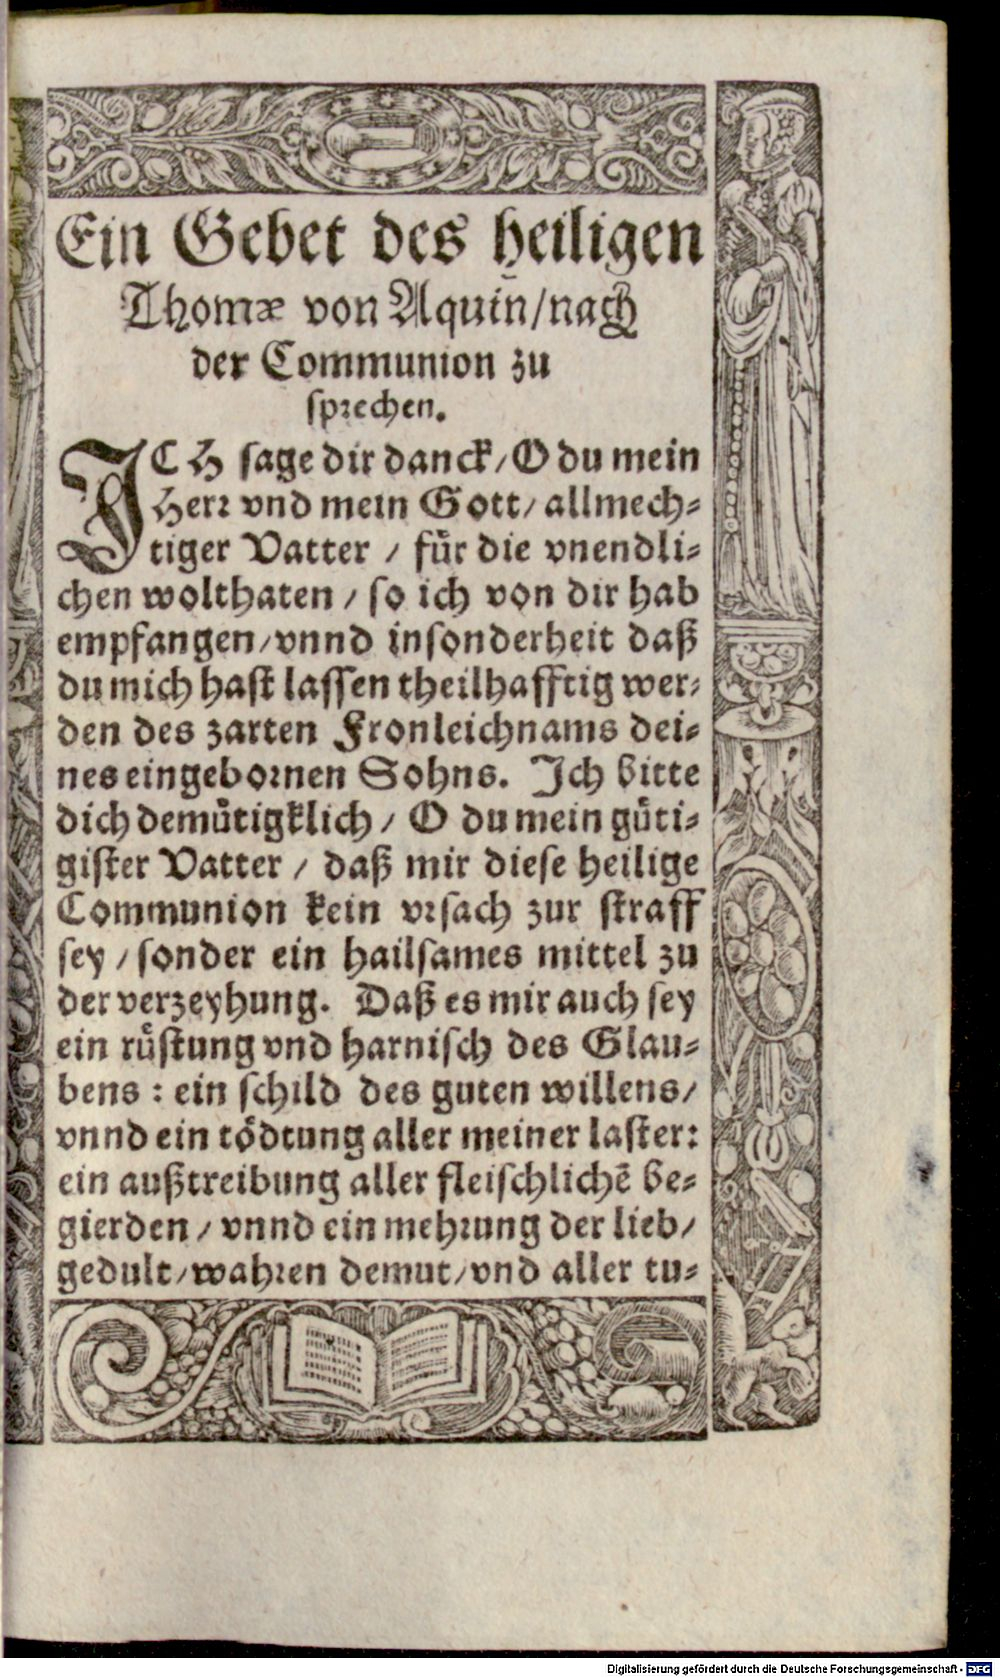 Ein Gebet des heiligen
Thomæ von Aquin/nach
der Communion zu
sprechen.
JCH sage dir danck/ O du mein
Herr vnd mein Gott/ allmech-
tiger Vatter / fuͤr die vnendli-
chen wolthaten / so ich von dir hab
empfangen/vnnd insonderheit daß
du mich hast lassen theilhafftig wer-
den des zarten Fronleichnams dei-
nes eingebornen Sohns. Ich bitte
dich demuͤtigklich/ O du mein guͤti-
gister Vatter / daß mir diese heilige
Communion kein vrsach zur straff
sey / sonder ein hailsames mittel zu
der verzeyhung. Daß es mir auch sey
ein ruͤstung vnd harnisch des Glau-
bens : ein schild des guten willens/
vnnd ein toͤdtung aller meiner laster:
ein außtreibung aller fleischlichẽ be-
gierden / vnnd ein mehrung der lieb/
gedult/wahren demut/vnd aller tu-
Digitalisierung gefördert durch die Deutsche Forschungsgemeinschaft - DFG